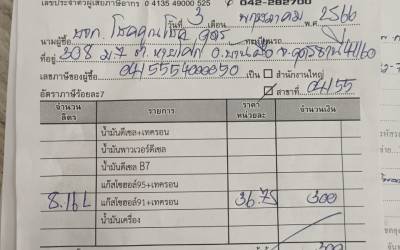 เลขประจำตัวผู้เสียภาษีอากร 0 4135 49000 525 042-282700
วันที่ 3 เดือน พฤษภาคม พ.ศ. 2566
นามผู้ซื้อ หจก. โชคคูณโชค อุดร ทะเบียนรถ
ที่อยู่ 208 ม.7 ต. หายโศก อ. บ้านผือ จ. อุดรธานี 41160
เลขภาษีของผู้ซื้อ 0415554000850 เป็น สำนักงานใหญ่
อัตราภาษีร้อยละ7 สาขาที่ 04155
จำนวนลิตร รายการ ราคาหน่วยละ จำนวนเงิน
น้ำมันดีเซล+เทครอน
น้ำมันพาวเวอร์ดีเซล
น้ำมันดีเซล B7
แก๊สโซฮอล์95+เทครอน
8.16L แก๊สโซฮอล์91+เทครอน 36.75 300
น้ำมันเครื่อง
300